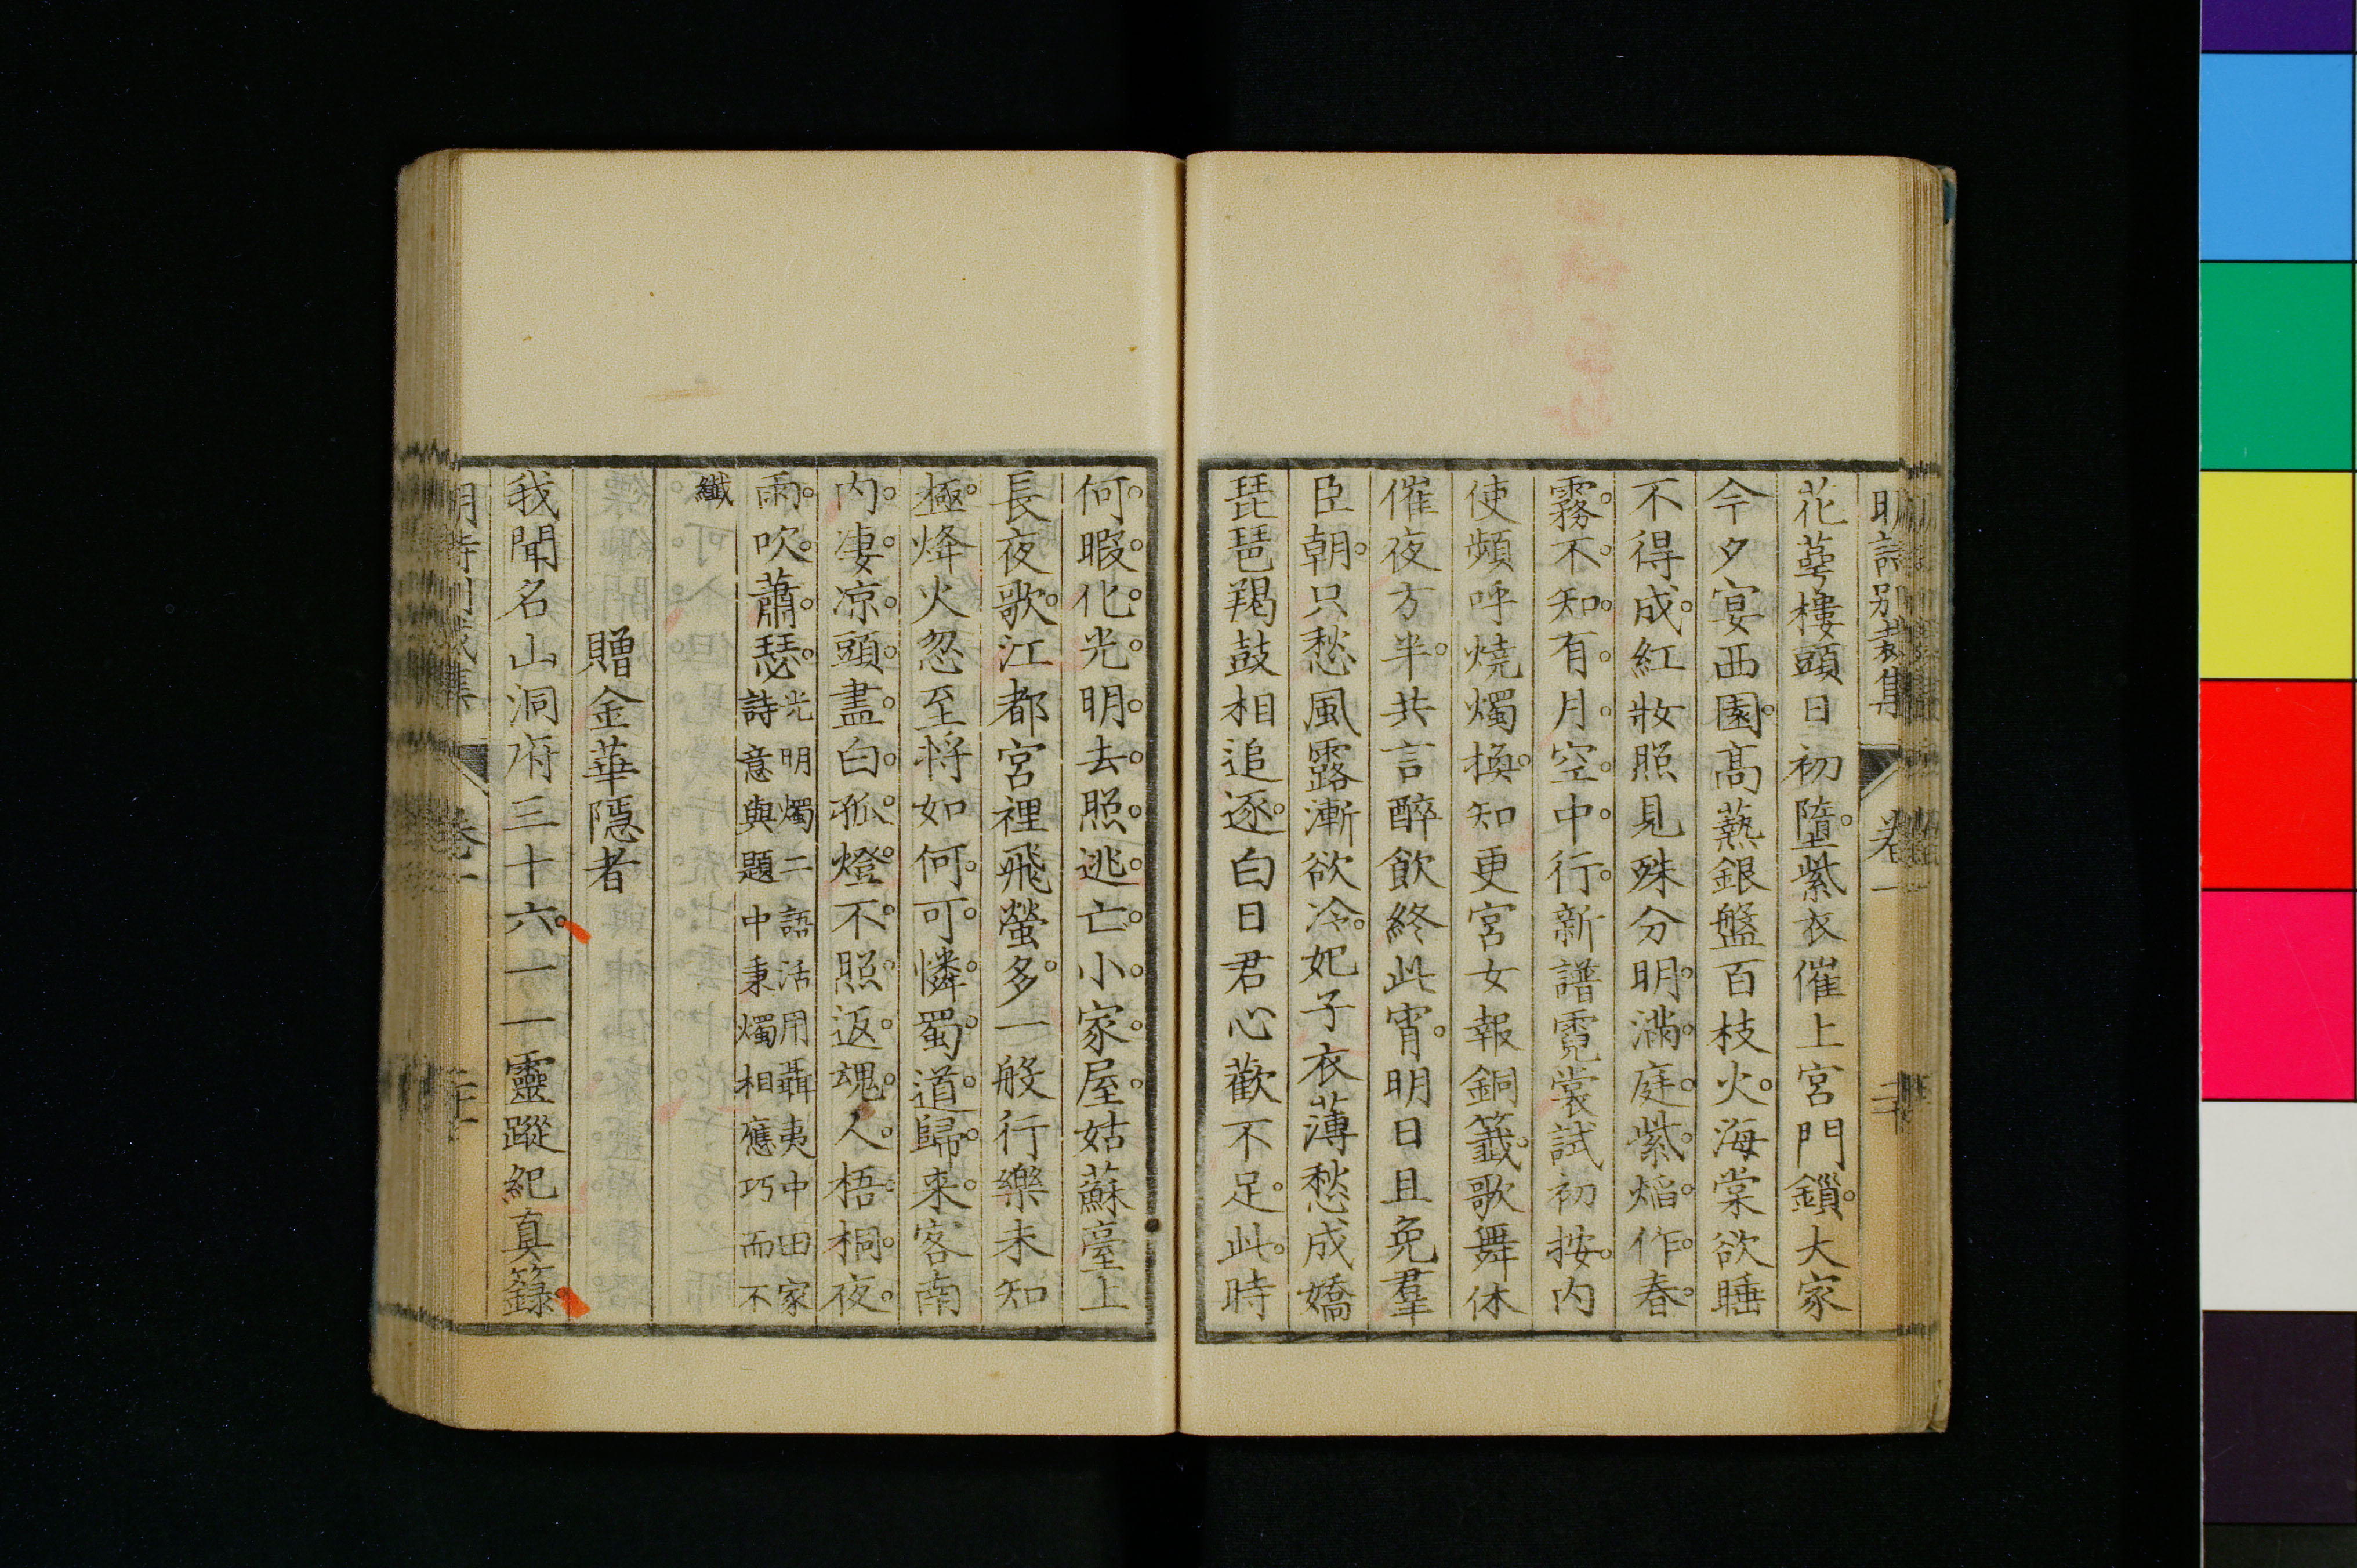 明詩別裁集 卷一
花萼樓頭日初墮。紫衣催上宮門鎖。大家
今夕宴西園。高爇銀盤百枝火。海棠欲睡
不得成。紅妝照見殊分明。滿庭紫焰作春
霧。不知有月空中行。新譜霓裳試初按。內
使頻呼燒燭換。知更宮女報銅籤。歌舞休
催夜方半。共言醉飲終此宵。明日且免羣
臣朝。只愁風露漸欲冷。妃子衣薄愁成嬌
琵琶羯鼓相追逐。白日君心歡不足。此時
何暇化光明。去照逃亡小家屋。姑蘇臺上
長夜歌。江都宮裡飛螢多。一般行樂未知
極。烽火忽至將如何。可憐蜀道歸來客。南
內凄凉頭盡白。孤燈不照返魂人。梧桐夜
雨吹蕭瑟。
光明燭二語活用聶夷中田家
詩意與題中秉燭相應巧而不
纖
贈金華隱者
我聞名山洞府三十六。一一靈蹤紀真籙。